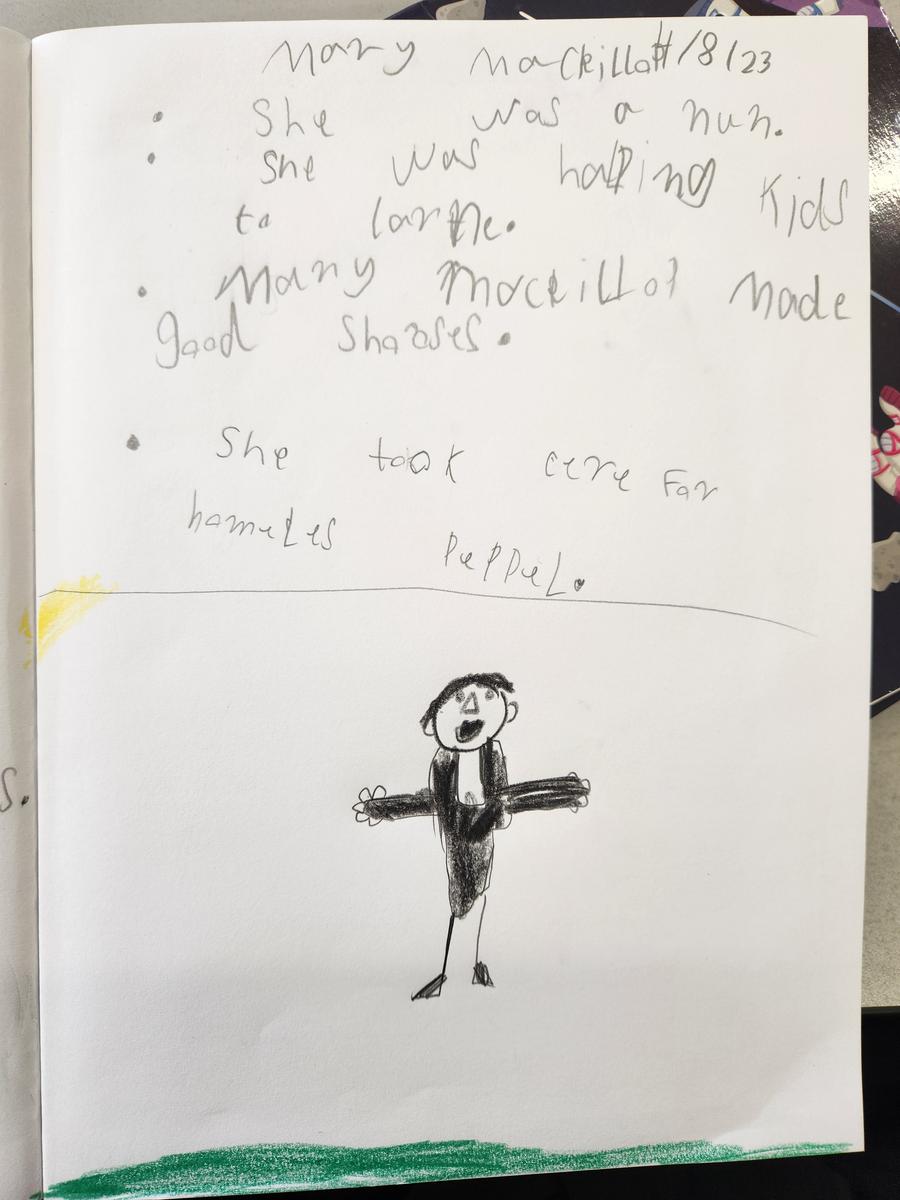 Mary Mackillot /8/23
• She was a nun.
• She was halping Kids
to larne.
• Mary Mackillot made
good shaoses.
• She took cere For
hameles peppel.
s.